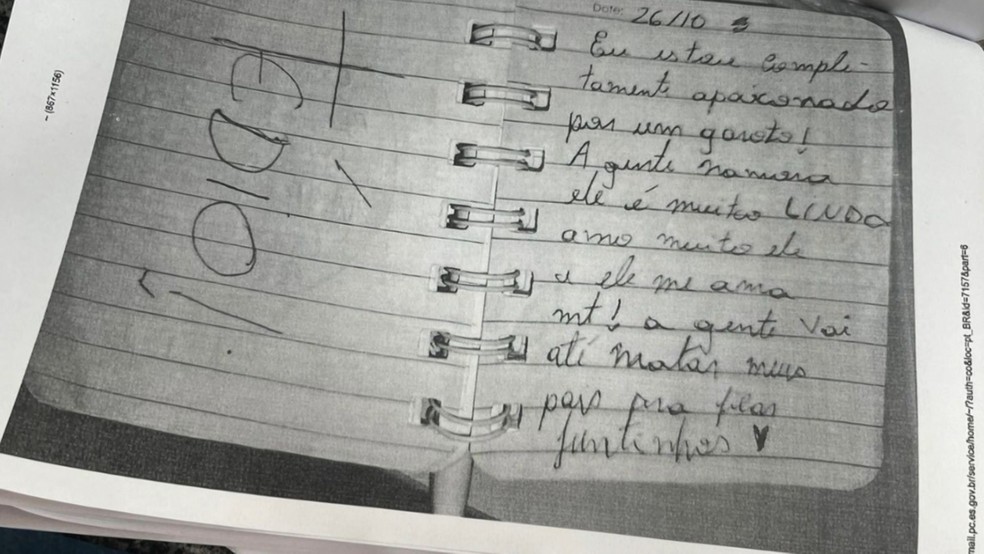 ~ (867×1156)
1º DIA
Date: 26/10
Eu estou comple-
tamente apaixonada
por um garoto!
A gente namora
ele é muito LINDO
amo muito ele
e ele me ama
mt! a gente vai
até matar meus
pais pra ficar
juntinhos ♥
mail.pc.es.gov.br/service/home/~/?auth=co&loc=pt_BR&id=7157&part=6